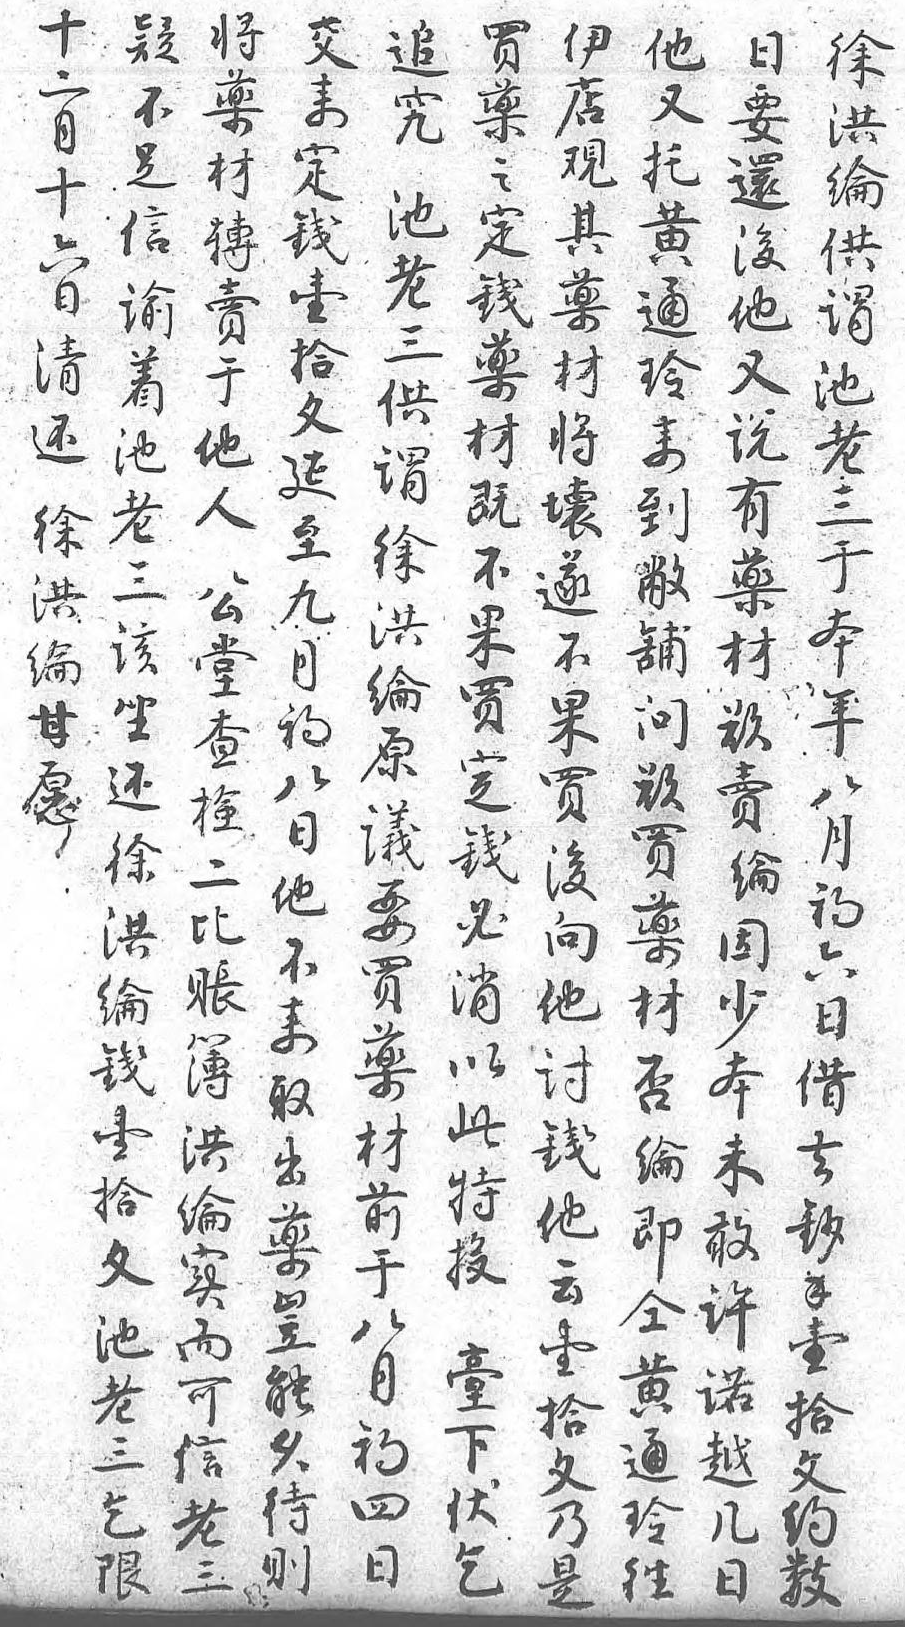 徐洪綸供謂池老三于本年八月初六日借去鈔銀壹拾文約數
日要還後他又説有藥材欲賣綸因少本未敢許諾越几日
他又托黄通玲来到敝舖问欲買藥材否綸即仝黄通玲往
伊店观其藥材将壊遂不果買後向他討錢他云壹拾文乃是
買藥之定錢藥材既不果買定錢必消以此特投 臺下伏乞
追究 池老三供謂徐洪綸原議要買藥材前于八月初四日
交来定錢壹拾文延至九月初八日他不来取出藥豈能久待則
将藥材轉賣于他人 公堂查檢二比賬簿洪綸实而可信老三
疑不足信諭着池老三该坐还徐洪綸錢壹拾文池老三乞限
十二月十六日清还 徐洪綸甘愿